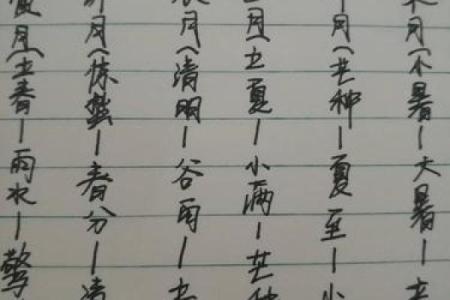 寅月(立春—雨水—驚
卯月(惊蛰—春分—清
辰月(清明—谷雨—立
巳月(立夏—小满—芒种
午月(芒种—夏至—小
未月(小暑—大暑—立